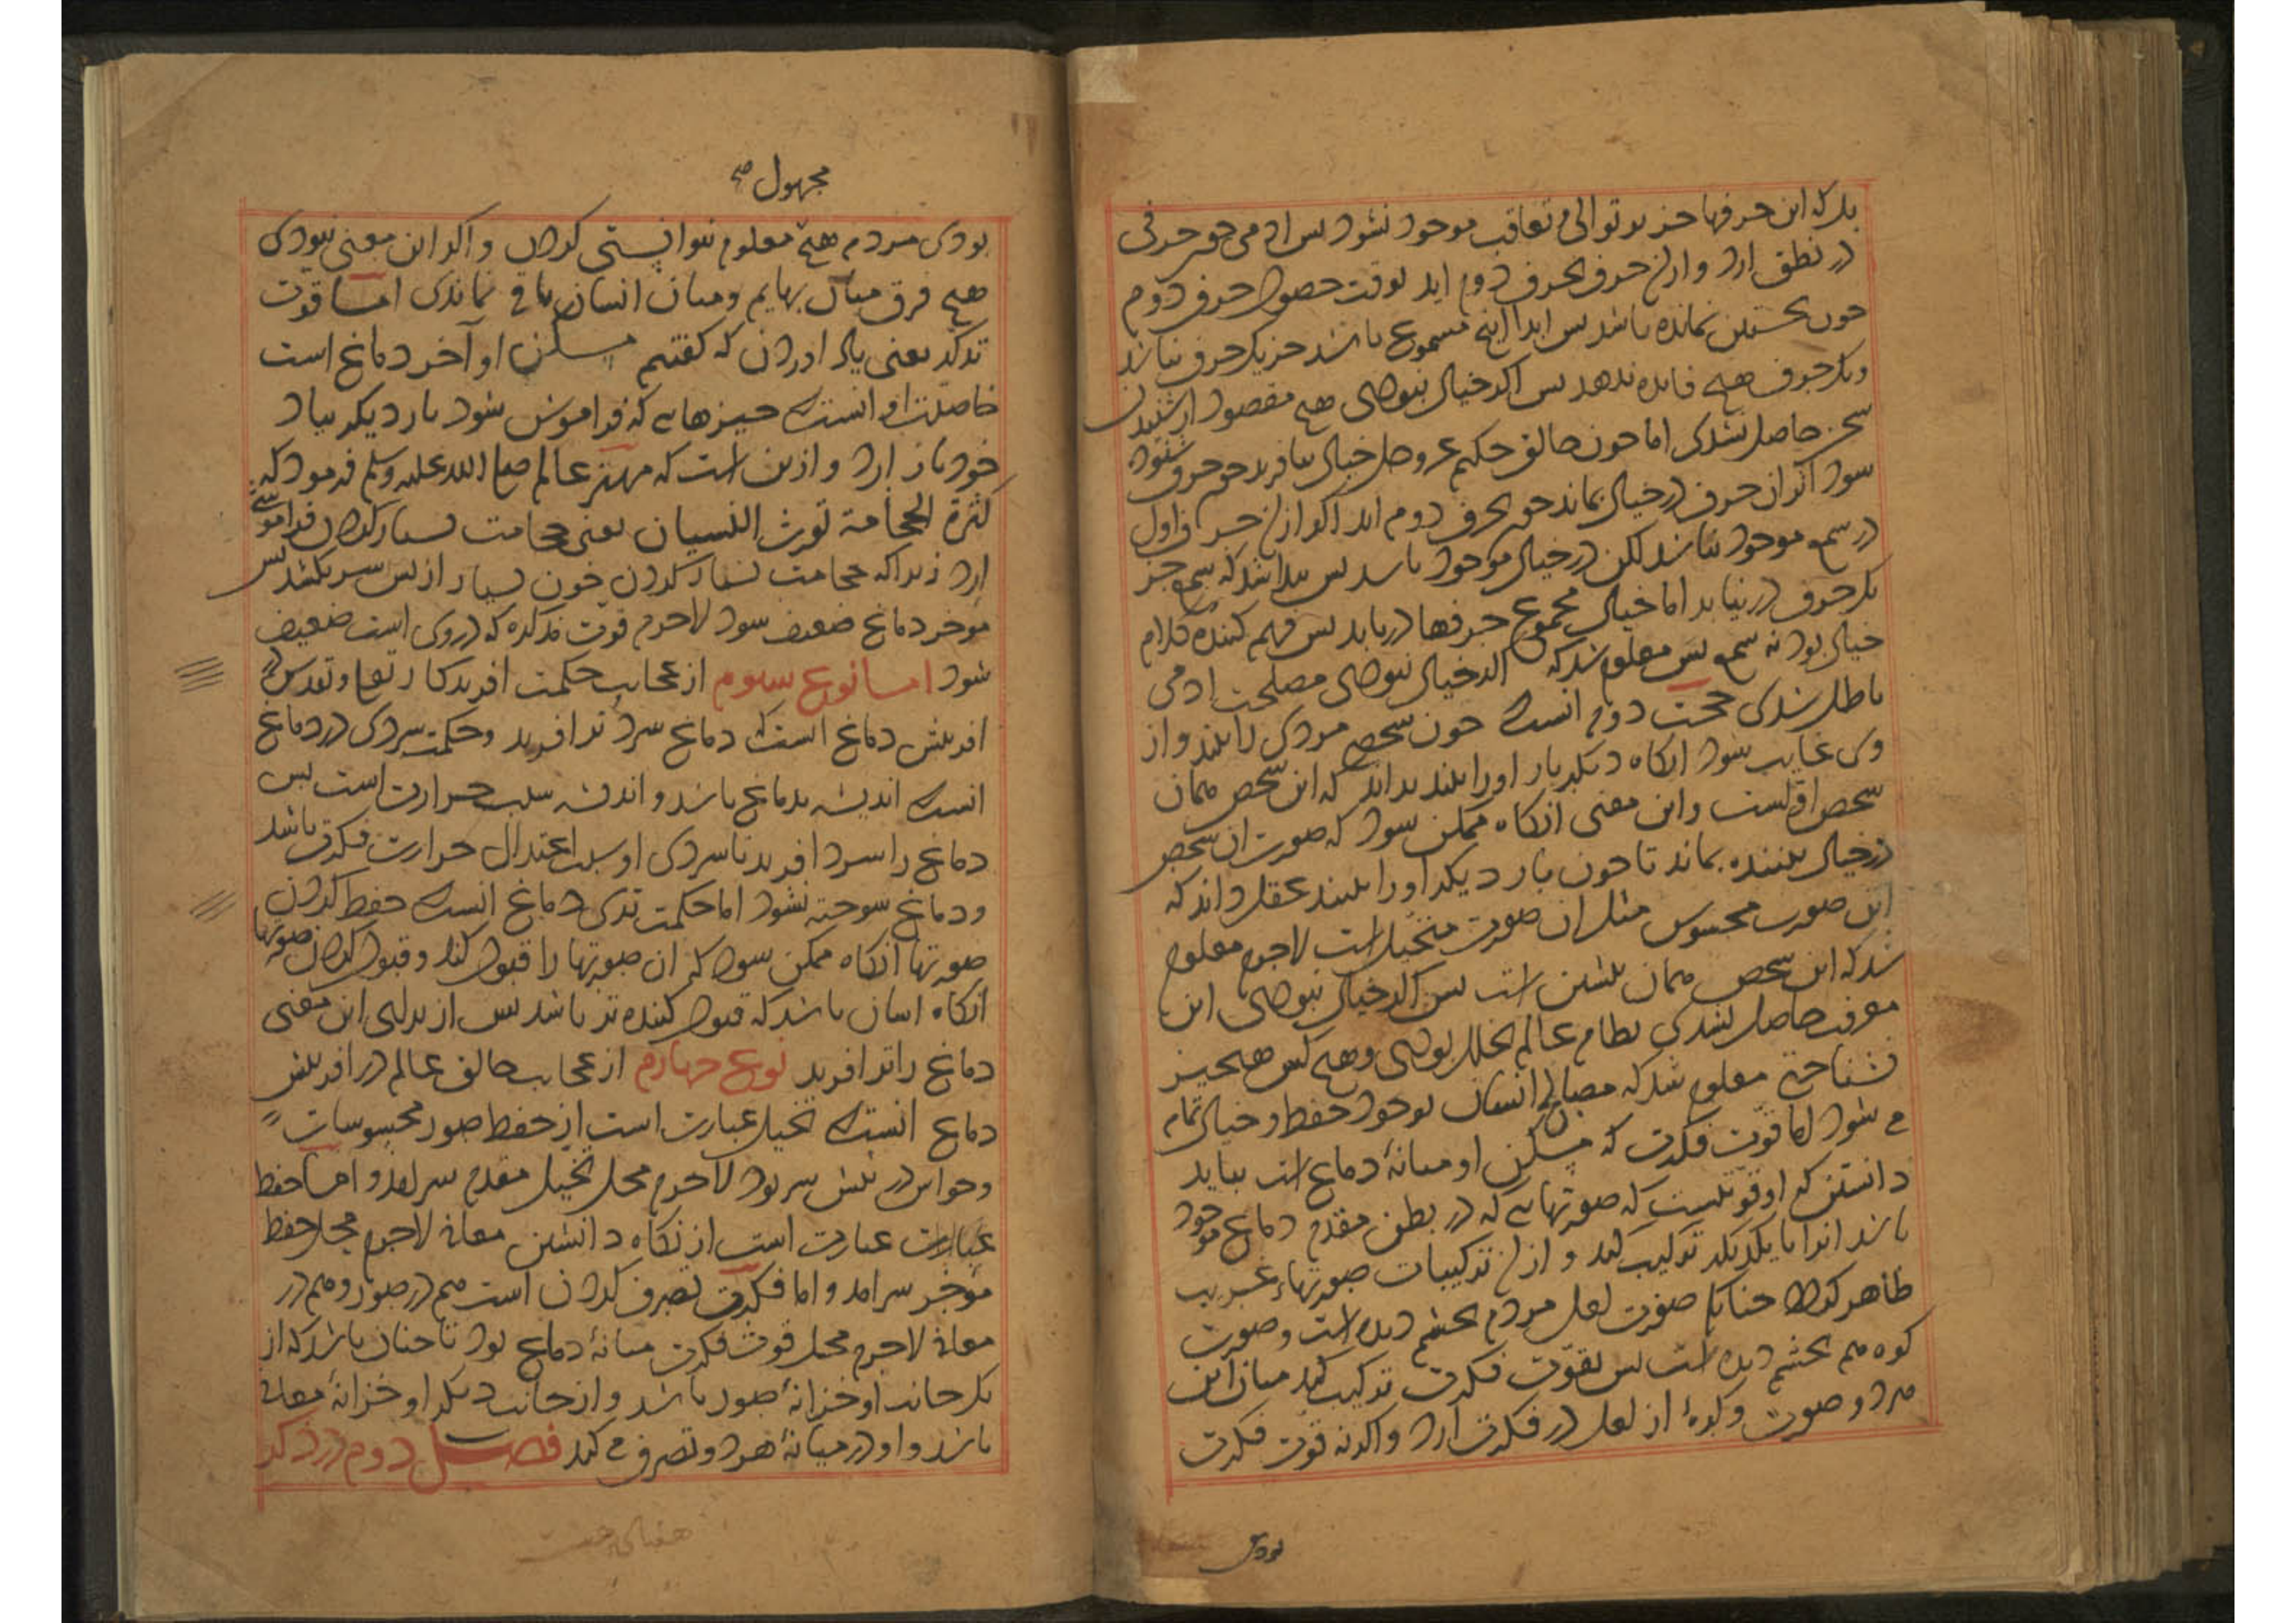 بدانکه این حرفها جز بر توالی و تعاقب موجود نشود پس ادمی چون حرفی
در نطق ارد و ازان حرف بحرف دوم اید بوقت حصول حرف دوم
حرف نخستین نمانده باشد پس ابدا انچه مسموع باشد جز یک حرف نباشد
و یک حرف هیچ فایده ندهد پس اکر خیال نبودی هیچ مقصود از شنیدن
سخن حاصل نشدی اما چون خالق حکیم عز و جل خیال بیافرید چون حرف شنوده
شود اثر ان حرف در خیال بماند چون بحرف دوم اید اکر ازان حرف اول
در سمع موجود نباشد لکن در خیال موجود باشد پس بدانند که سمع جز
یک حرف در نیابد اما خیال مجموع حرفها دریابد پس فهم کننده کلام
خیال بود نه سمع پس معلوم شد که اکر خیال نبودی مصلحت ادمی
باطل شدی حجت دوم انست که چون شخصی مردی را بیند و از
وی غایب شود انکاه دیکر بار اورا بیند بداند که این شخص همان
شخص اولست و این معنی انکاه ممکن شود که صورت ان شخص
در خیال بیننده بماند تا چون بار دیکر اورا بیند عقل داند که
این صورت محسوس مثل ان صورت متخیل است لاجرم معلوم
شد که این شخص همان پیشین است پس اکر خیال نبودی این
معرفت حاصل نشدی نظام عالم بخلل بودی و هیچ کس هیچ چیز
نشناختی معلوم شد که مصالح انسان بوجود حفظ و خیال تمام
می شود اما قوت فکرت که مسکن او میانهٔ دماغ است بباید
دانستن که او قوتیست که صورتهایی که در بطن مقدم دماغ موجود
باشد انرا با یکدیکر ترکیب کند و ازان ترکیبات صورتهاء غریب
ظاهر کردد چنانک صورت لعل مردم بچشم دیده است و صورت
کوه هم بچشم دیده است پس بقوت فکرت ترکیب کند میان این
هر دو صورت و کوهٔ از لعل در فکرت ارد و اکر نه قوت فکرت
بودی
مجهول صح
بودی مردم هیچ معلوم نتوانستی کردن و اکر این معنی نبودی
هیچ فرق میان بهایم و میان انسان باقی نماندی اما قوت
تذکر یعنی یاد اوردن که کفتیم مسکن او آخر دماغ است
خاصیت او انست که چیزهایی که فراموش شود بار دیکر بیاد
خود باز ارد و ازین است که مهتر عالم صلی الله علیه وسلم فرمود که
کثرة الحجامة تورث النسیان یعنی حجامت بسیار کردن فراموشی
ارد زیرا که حجامت بسیار کردن خون بسیار از پس سر بکشد پس
مؤخر دماغ ضعیف شود لاجرم قوت تذکره که در وی است ضعیف
شود اما نوع سوم از عجایب حکمت افریدکار تعالی و تقدس در
افرینش دماغ انست که دماغ سرد تر افرید و حکمت سردی در دماغ
انست که اندیشه بدماغ باشد و اندیشه سبب حرارت است پس
دماغ را سرد افرید تا سردی او سبب اعتدال حرارت فکرت باشد
و دماغ سوخته نشود اما حکمت تری دماغ انست که حفظ کردن
صورتها انکاه ممکن شود که ان صورتها را قبول کند و قبول کردن صورتها
انکاه اسان باشد که قبول کننده تر باشد پس از برای این معنی
دماغ را تر افرید نوع چهارم از عجایب خالق عالم در افرینش
دماغ انست که تخیل عبارت است از حفظ صور محسوسات
و حواس در پیش سر بود لاجرم محل تخیل مقدم سر امد و اما حفظ
عبارات عبارت است از نکاه داشتن معانی لاجرم محل حفظ
مؤخر سر امد و اما فکرت تصرف کردن است هم در صور و هم در
معانی لاجرم محل قوت فکرت میانهٔ دماغ بود تا چنان باشد که از
یک جانب او خزانهٔ صور باشد و از جانب دیکر او خزانهٔ معانی
باشد و او در میانهٔ هر دو تصرف می کند فصل دوم در ذکر